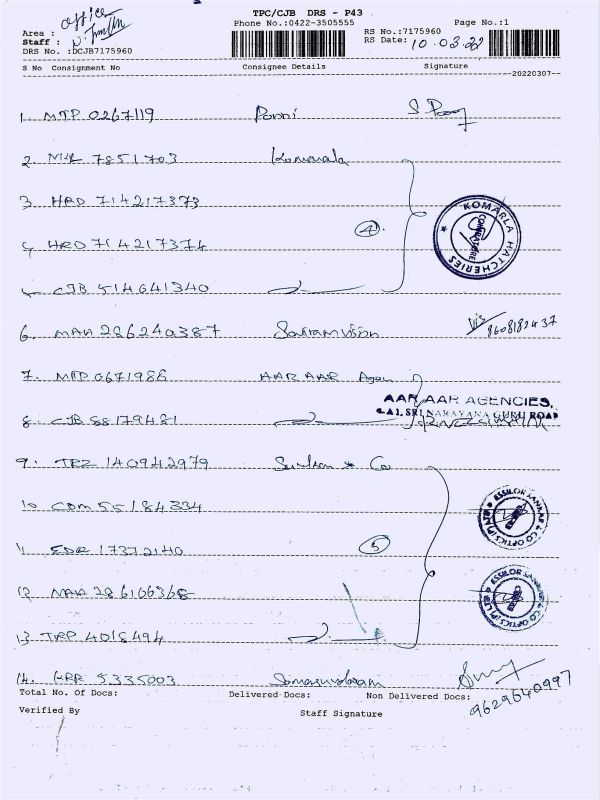 TPC/CJB DRS - P43
Office
Area :
Phone No.:0422-3505555
Page No.:1
Staff :
RS No.:7175960
DRS No. :DCJB7175960
RS Date: 10.03.22
S No Consignment No Consignee Details Signature
--20220307--
1. MTP 0267119 Ponni
2. 7851703 Kommala
3. HRD 714217373
4. HRD 714217374
(4)
KOMARLA HATCHERIES
COIMBATORE
5. CJB 514641340
6. MAA 286240387 8608182437
7. MTP 0671986 AAR AAR Agen
AAR AAR AGENCIES,
SRI NARAYANA GURU ROAD
8. CJB 88179481
9. TRZ 140942979 & Co
10. CDM 55184334
ESSILOR SANKAR & CO OPTICS (P) LTD
11. EDR 17372140
(5)
12. MAA 286106368
ESSILOR SANKAR & CO OPTICS (P) LTD
13. TRP 4018494
14. 5335003
9629640997
Total No. Of Docs: Delivered Docs: Non Delivered Docs:
Verified By Staff Signature